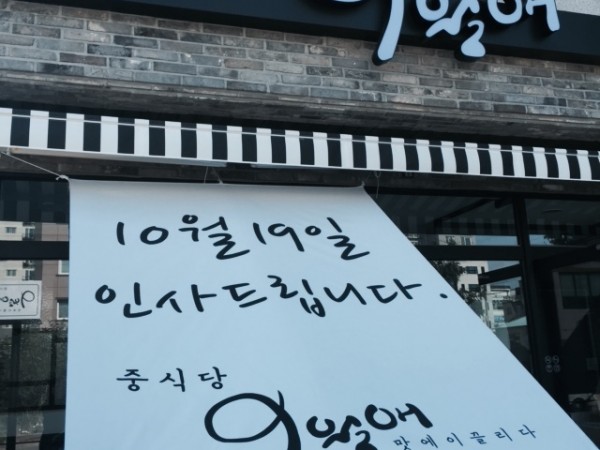 월애
10월 19일
인사드립니다.
중식당
월애
맛에이끌리다